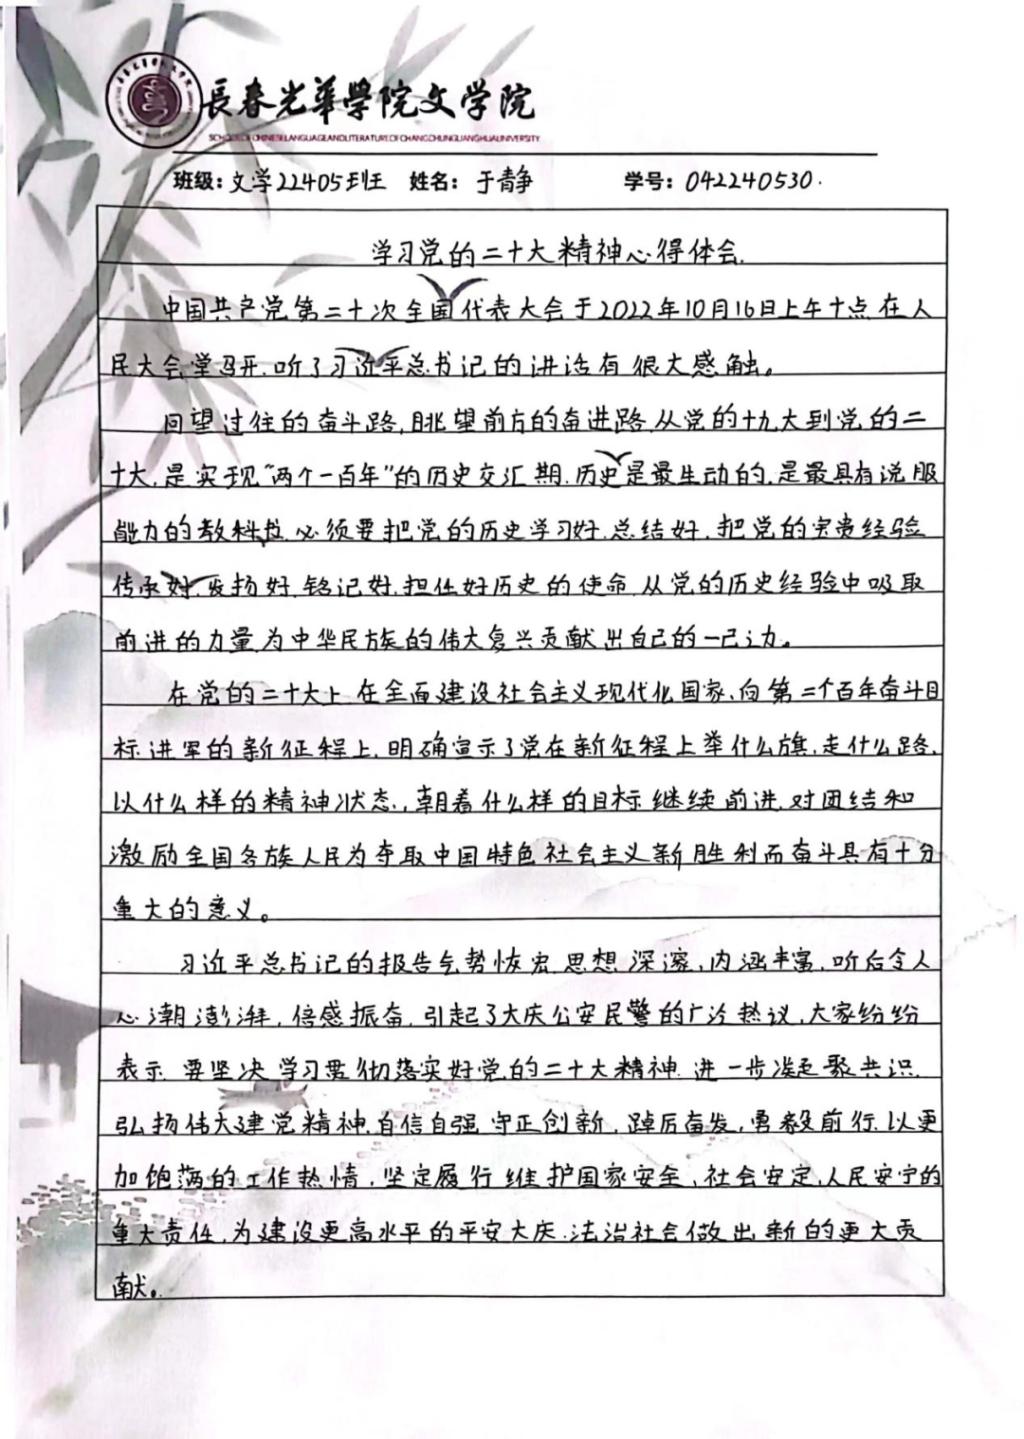 長春光華學院文学院
SCHOOL OF CHINESE LANGUAGE AND LITERATURE OF CHANGCHUN GUANGHUA UNIVERSITY
班级:文学22405班 姓名:于青静 学号:042240530.
学习党的二十大精神心得体会.
中国共产党第二十次全国代表大会于2022年10月16日上午十点在人
民大会堂召开.听了习近平总书记的讲话有很大感触。
回望过往的奋斗路,眺望前方的奋进路.从党的十九大到党的二
十大,是实现“两个一百年”的历史交汇期.历史是最生动的.是最具有说服
能力的教科书.必须要把党的历史学习好.总结好.把党的宝贵经验
传承好.发扬好.铭记好.担任好历史的使命.从党的历史经验中吸取
前进的力量.为中华民族的伟大复兴贡献出自己的一己之力。
在党的二十大上.在全面建设社会主义现代化国家.向第二个百年奋斗目
标进军的新征程上.明确宣示了党在新征程上举什么旗,走什么路.
以什么样的精神状态,朝着什么样的目标继续前进.对团结和
激励全国各族人民为夺取中国特色社会主义新胜利而奋斗具有十分
重大的意义。
习近平总书记的报告气势恢宏.思想深邃,内涵丰富,听后令人
心潮澎湃,倍感振奋,引起了大庆公安民警的广泛热议,大家纷纷
表示.要坚决学习贯彻落实好党的二十大精神.进一步凝聚共识.
弘扬伟大建党精神.自信自强.守正创新,踔厉奋发,勇毅前行.以更
加饱满的工作热情,坚定履行维护国家安全,社会安定,人民安宁的
重大责任,为建设更高水平的平安大庆.法治社会做出新的更大贡
献。